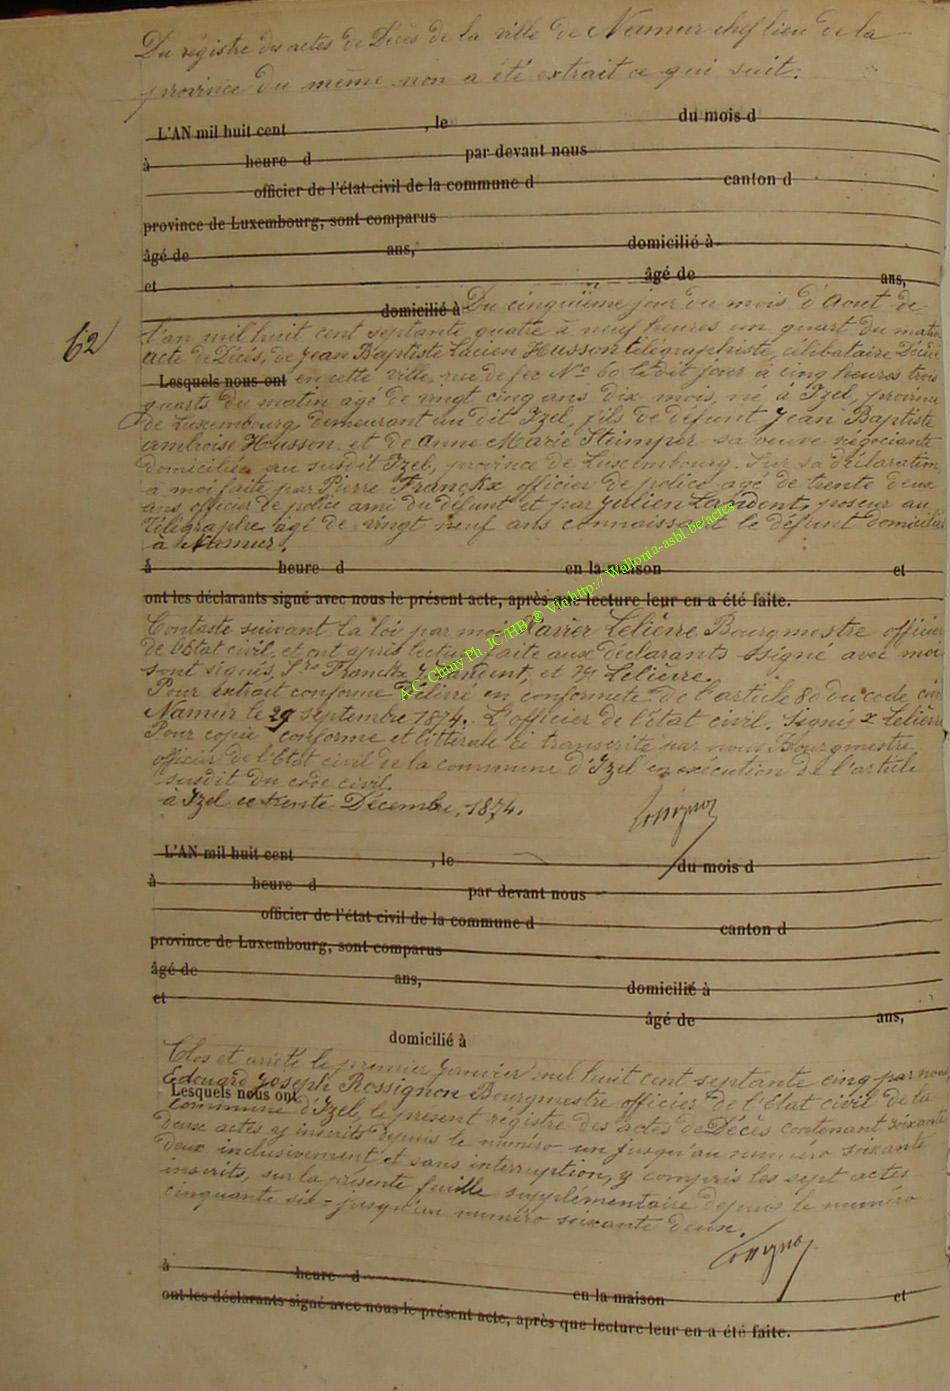 Du régistre des actes de Décès de la ville de Namur chef lieu de la
province du même non a été extrait ce qui suit.
L'AN mil huit cent , le du mois d
à heure d par devant nous
officier de l'état civil de la commune d canton d
province de Luxembourg, sont comparus
âgé de ans, domicilié à
et âgé de ans,
domicilié à Du cinquième jour du mois d'Aout de
62
l'an mil huit cent septante quatre à neuf heures un quart du matin
acte de Décès, de Jean Baptiste Lucien Husson télégraphiste, célibataire Décédé
Lesquels nous ont en cette ville, rue de fer No 60 le dit jour à cinq heures trois
quarts du matin agé de vingt cinq ans dix mois, né à Izel, province
de Luxembourg, demeurant au dit Izel, fils de défunt Jean Baptiste
ambroise Husson et de Anne Marie Steimper sa veuve négociante
domiciliée au susdit Izel, province de Luxembourg. Sur la déclaration
à moi faite par Pierre Franckx officier de police agé de trente deux
ans, officier de police ami du défunt et par Julien Landent, poseur au
Télégraphe agé de vingt neuf ans connaissant le défunt domicilié
à Namur.
à heure d en la maison et
ont les déclarants signé avec nous le présent acte, après que lecture leur en a été faite.
A.C. Chiny Ph. JC/HB ® Via http:// Wallonia-asbl.be/actes
Contaste suivant la loi par moi Xavier Lelièvre Bourgmestre officier
de l'Etat civil, et ont après lecture faite aux déclarants signé avec moi
sont signés, Franckx, J Landent, et Lelièvre.
Pour extrait conforme Délivré en conformeté de l'article 80 du code civil
Namur le 29 septembre 1874. L'officier de l'état civil. Signés X Lelièvre
Pour copie conforme et littérale ci transcrite par nous Bourgmestre
officier de l'Etat civil de la commune d'Izel en exécution de l'article
susdit du code civil.
à Izel ce trente Décembre, 1874.
Rossignon
L'AN mil huit cent , le du mois d
à heure d par devant nous
officier de l'état civil de la commune d canton d
province de Luxembourg, sont comparus
âgé de ans, domicilié à
et âgé de ans,
domicilié à
Clos et arrêté le premier Janvier mil huit cent septante cinq par nous
Edouard Joseph Rossignon Bourgmestre officier de l'Etat civil de la
Lesquels nous ont
commune d'Izel, le présent régistre des actes de Décès contenant soixante
deux actes y inscrits depuis le numéro un jusqu'au numéro soixante
deux inclusivement et sans interruption, y compris les sept actes
inscrits, sur la présente feuille supplémentaire depuis le numéro
cinquante six jusqu'au numéro soixante deux.
Rossignon
à heure d en la maison et
ont les déclarants signé avec nous le présent acte, après que lecture leur en a été faite.